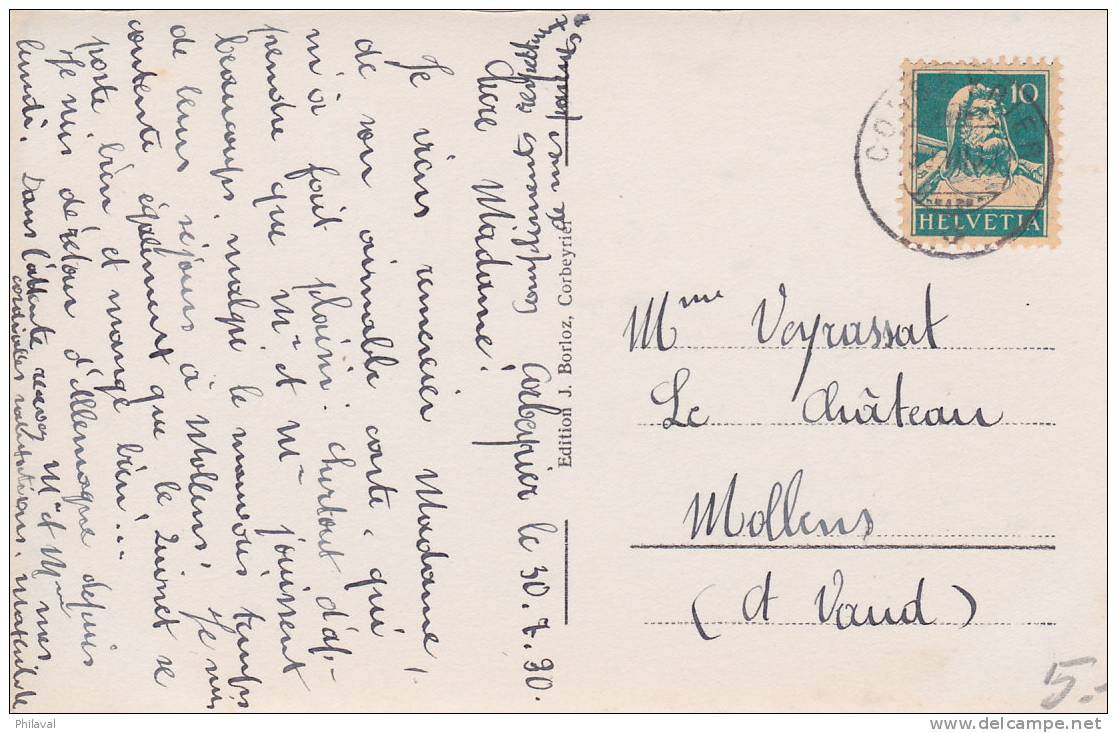 Corbeyrier le 30.7.30.
Chère Madame!
Je viens remercier Madame,
de son aimable carte, qui
m'a fait plaisir. churtout d'ap-
prendre que Mr et Mme jouissent
beaucoups, malgré le mauvais temps
de leurs séjours à Mollens! Je suis
contente également que le Quinet se
porte bien et mange bien!...
Je suis de retour d'Allemagne depuis
lundi. Dans l'attente recevez Mr et Mme mes
cordialles salutations. Mathilde
de mes parents
Edition J. Borloz, Corbeyrier
10
HELVETIA
CORBEYRIER
Mme Veyrassat
Le Château
Mollens
(Ct Vaud)
5.-
Philaval
www.delcampe.net